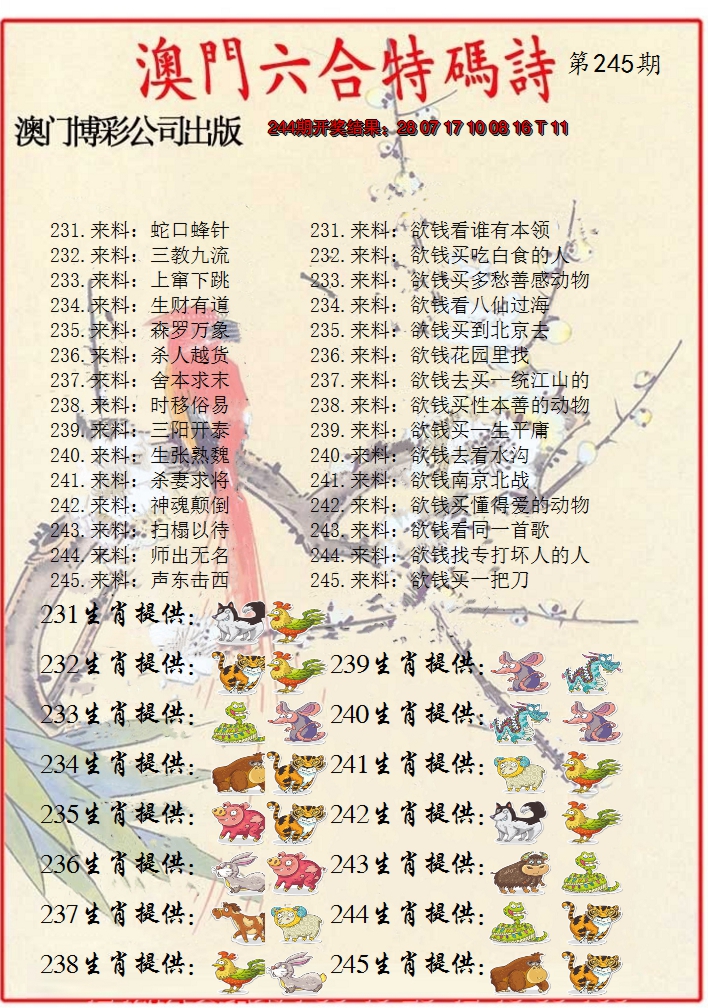 澳門六合特碼詩 第245期
澳门博彩公司出版 244期开奖结果：28 07 17 10 08 16 T 11
231.来料：蛇口蜂针 231.来料：欲钱看谁有本领
232.来料：三教九流 232.来料：欲钱买吃白食的人
233.来料：上窜下跳 233.来料：欲钱买多愁善感动物
234.来料：生财有道 234.来料：欲钱看八仙过海
235.来料：森罗万象 235.来料：欲钱买到北京去
236.来料：杀人越货 236.来料：欲钱花园里找
237.来料：舍本求末 237.来料：欲钱去买一统江山的
238.来料：时移俗易 238.来料：欲钱买性本善的动物
239.来料：三阳开泰 239.来料：欲钱买一生平庸
240.来料：生张熟魏 240.来料：欲钱去看水沟
241.来料：杀妻求将 241.来料：欲钱南京北战
242.来料：神魂颠倒 242.来料：欲钱买懂得爱的动物
243.来料：扫榻以待 243.来料：欲钱看同一首歌
244.来料：师出无名 244.来料：欲钱找专打坏人的人
245.来料：声东击西 245.来料：欲钱买一把刀
231生肖提供：
232生肖提供： 239生肖提供：
233生肖提供： 240生肖提供：
234生肖提供： 241生肖提供：
235生肖提供： 242生肖提供：
236生肖提供： 243生肖提供：
237生肖提供： 244生肖提供：
238生肖提供： 245生肖提供：